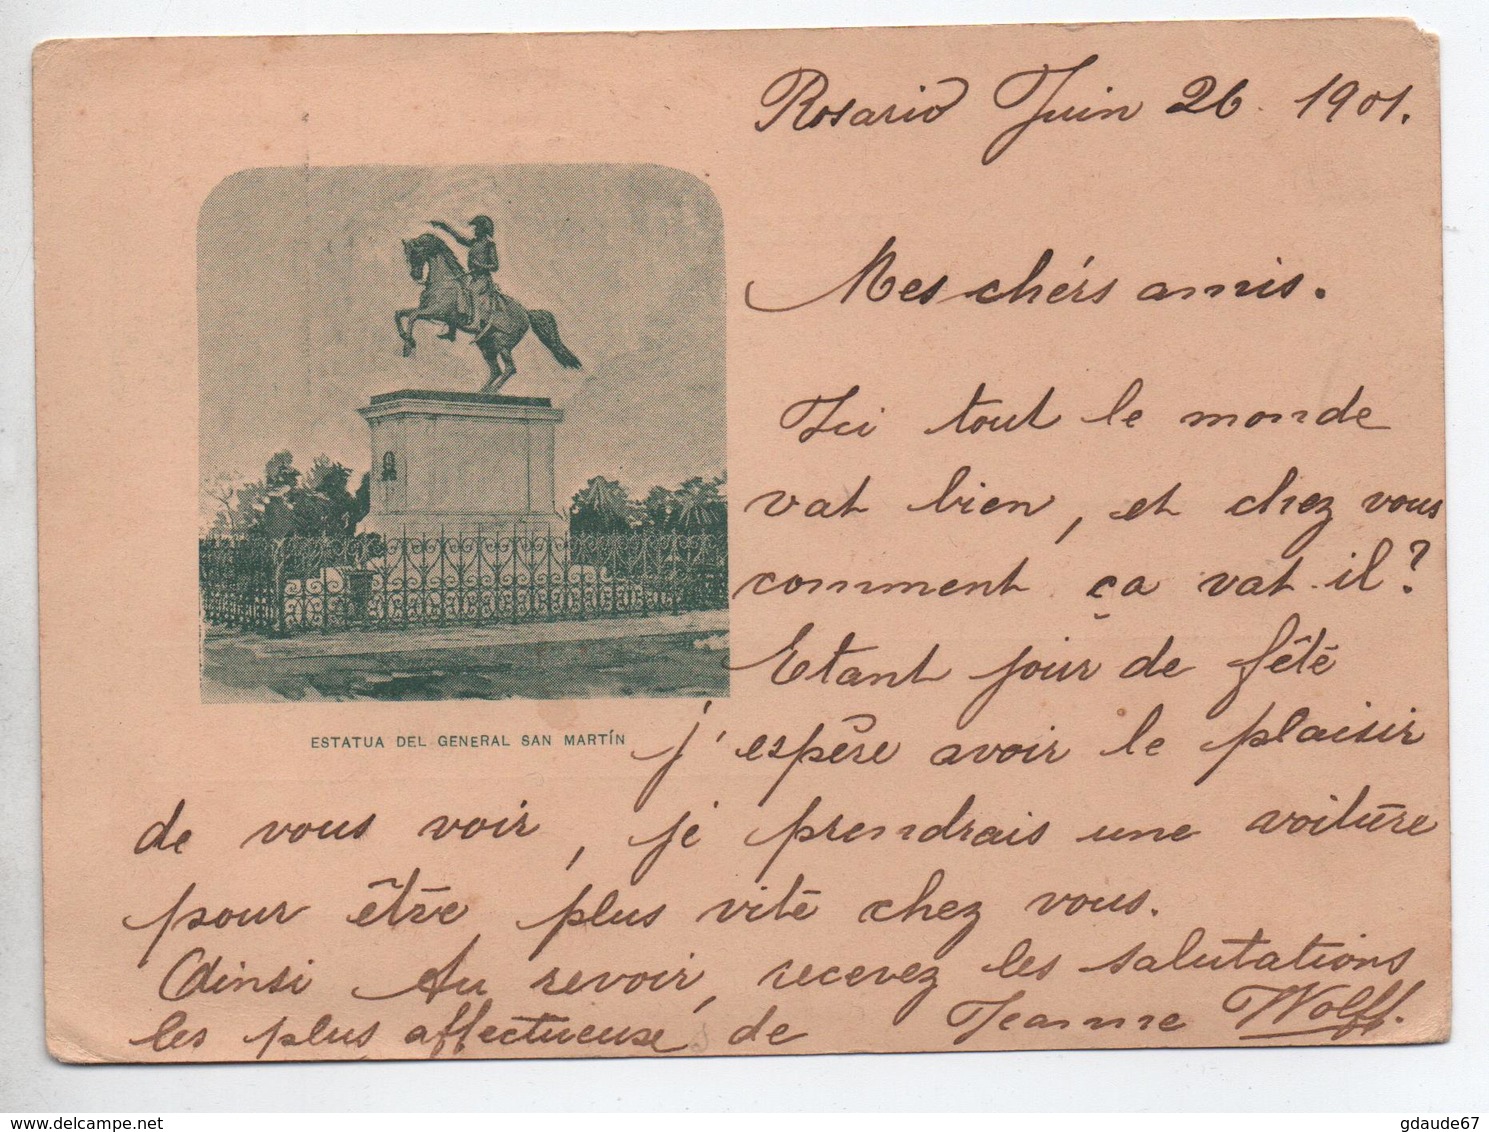 Rosario Juin 26. 1901.
Mes chérs amis.
Ici tout le monde
vat bien, et chez vous
comment ça vat-il?
Etant jour de fêté
ESTATUA DEL GENERAL SAN MARTÍN
j'espêre avoir le plaisir
de vous voir, je prendrais une voiture
pour être plus vite chez vous.
Ainsi Au revoir, recevez les salutations
les plus affectueuse, de Jeanne Wolff.
gdaude67